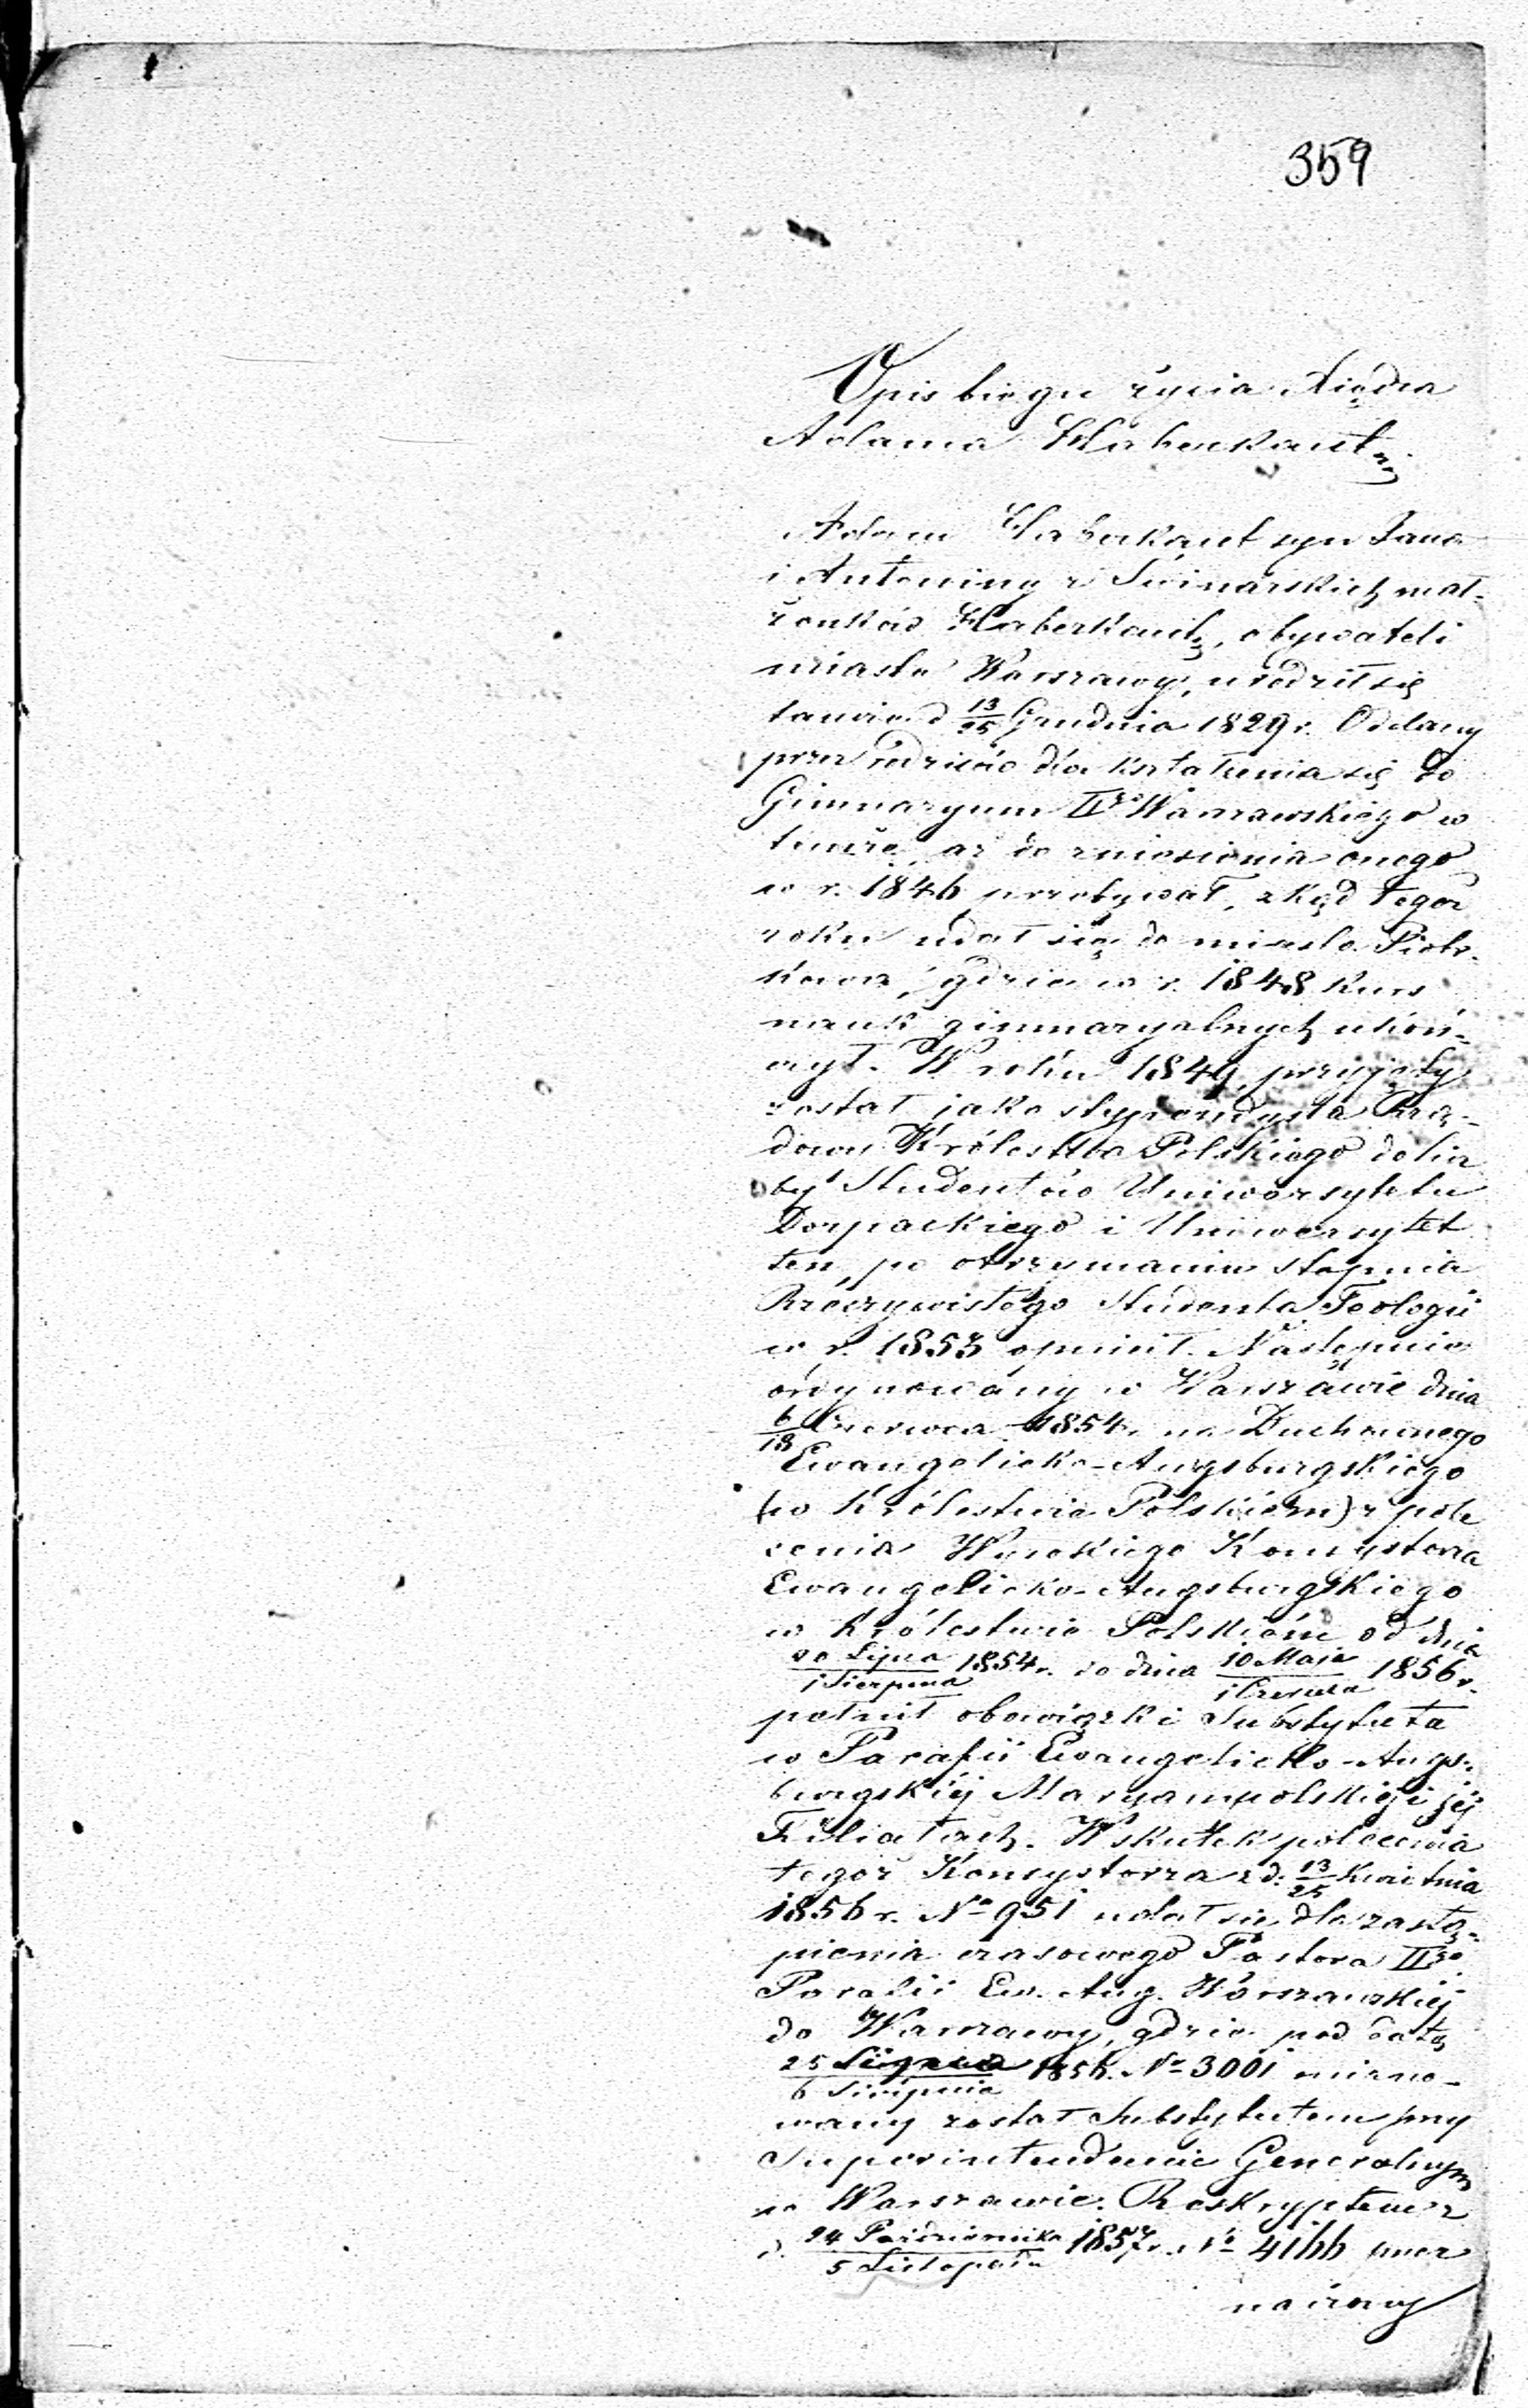 359
Opis biegu życia Xiędza
Adama Haberkant.
Adam Haberkant syn Jana
i Antoniny z Świnarskich mał-
żonków Haberkant, obywateli
miasta Warszawy, urodził się
tamże d 13/25 Grudnia 1829 r. Oddany
przez rodziców dla kształcenia się do
Gimnazyum IIgo Warszawskiego w
temże, aż do zniesienia onego
w r. 1846 przebywał, zkąd tegoż
roku udał się do miasta Piotr-
kowa, gdzie w r. 1848 kurs
nauk gimnazyalnych ukoń-
czył. W roku 1849 przyjęty
został jako stypendysta Rzą-
dowy Królestwa Polskiego do licz
by Studentów Uniwersytetu
Dorpackiego i Uniwersytet
ten, po otrzymaniu stopnia
Rzeczywistego Studenta Teologii
w r. 1853 opuścił. Następnie
ordynowany w Warszawie dnia
6/18 Czerwca 1854 r. na Duchownego
Ewangelicko-Augsburgskiego
(w Królestwie Polskiém) z pole
cenia Konsystorza
Ewangelicko-Augsburgskiego
w Królestwie Polskiém od dnia
20 Lipca/1 Sierpnia 1854 r. do dnia Maja/1 Czerwca 1856 r.
pełnił obowiązki Substytuta
w Parafii Ewangelicko-Augs-
burgskiéj Maryampolskiéj i jéj
Filiałach. W skutek polecenia
tegoż Konsystorza z d: 13/25 Kwietnia
1856 r. No 951 udał się dla zastą-
pienia czasowego Pastora IIgo
Parafii Ew. Aug. Warszawskiéj
do Warszawy, gdzie pod datą
25 Lipca/6 Sierpnia 1856. No 3001 miano-
wany został Substytutem przy
Superintendencie Generalnym
w Warszawie. Reskryptem z
d. 24 Października/5 Listopada 1857 r. No 4166 przez